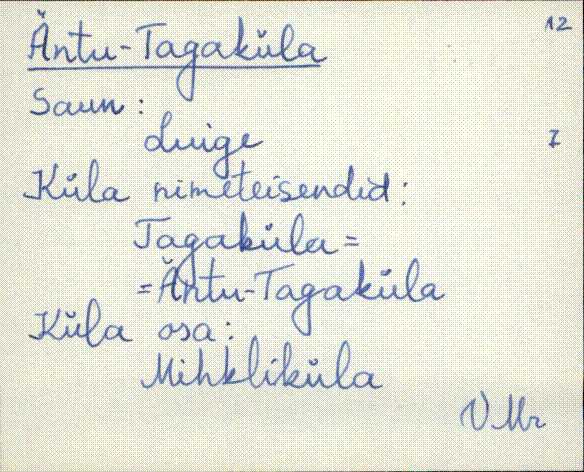 Äntu-Tagaküla 12
Saun:
Luige 7
Küla nimeteisendid:
Tagaküla =
= Äntu-Tagaküla
Küla osa:
Mihkliküla
VMr